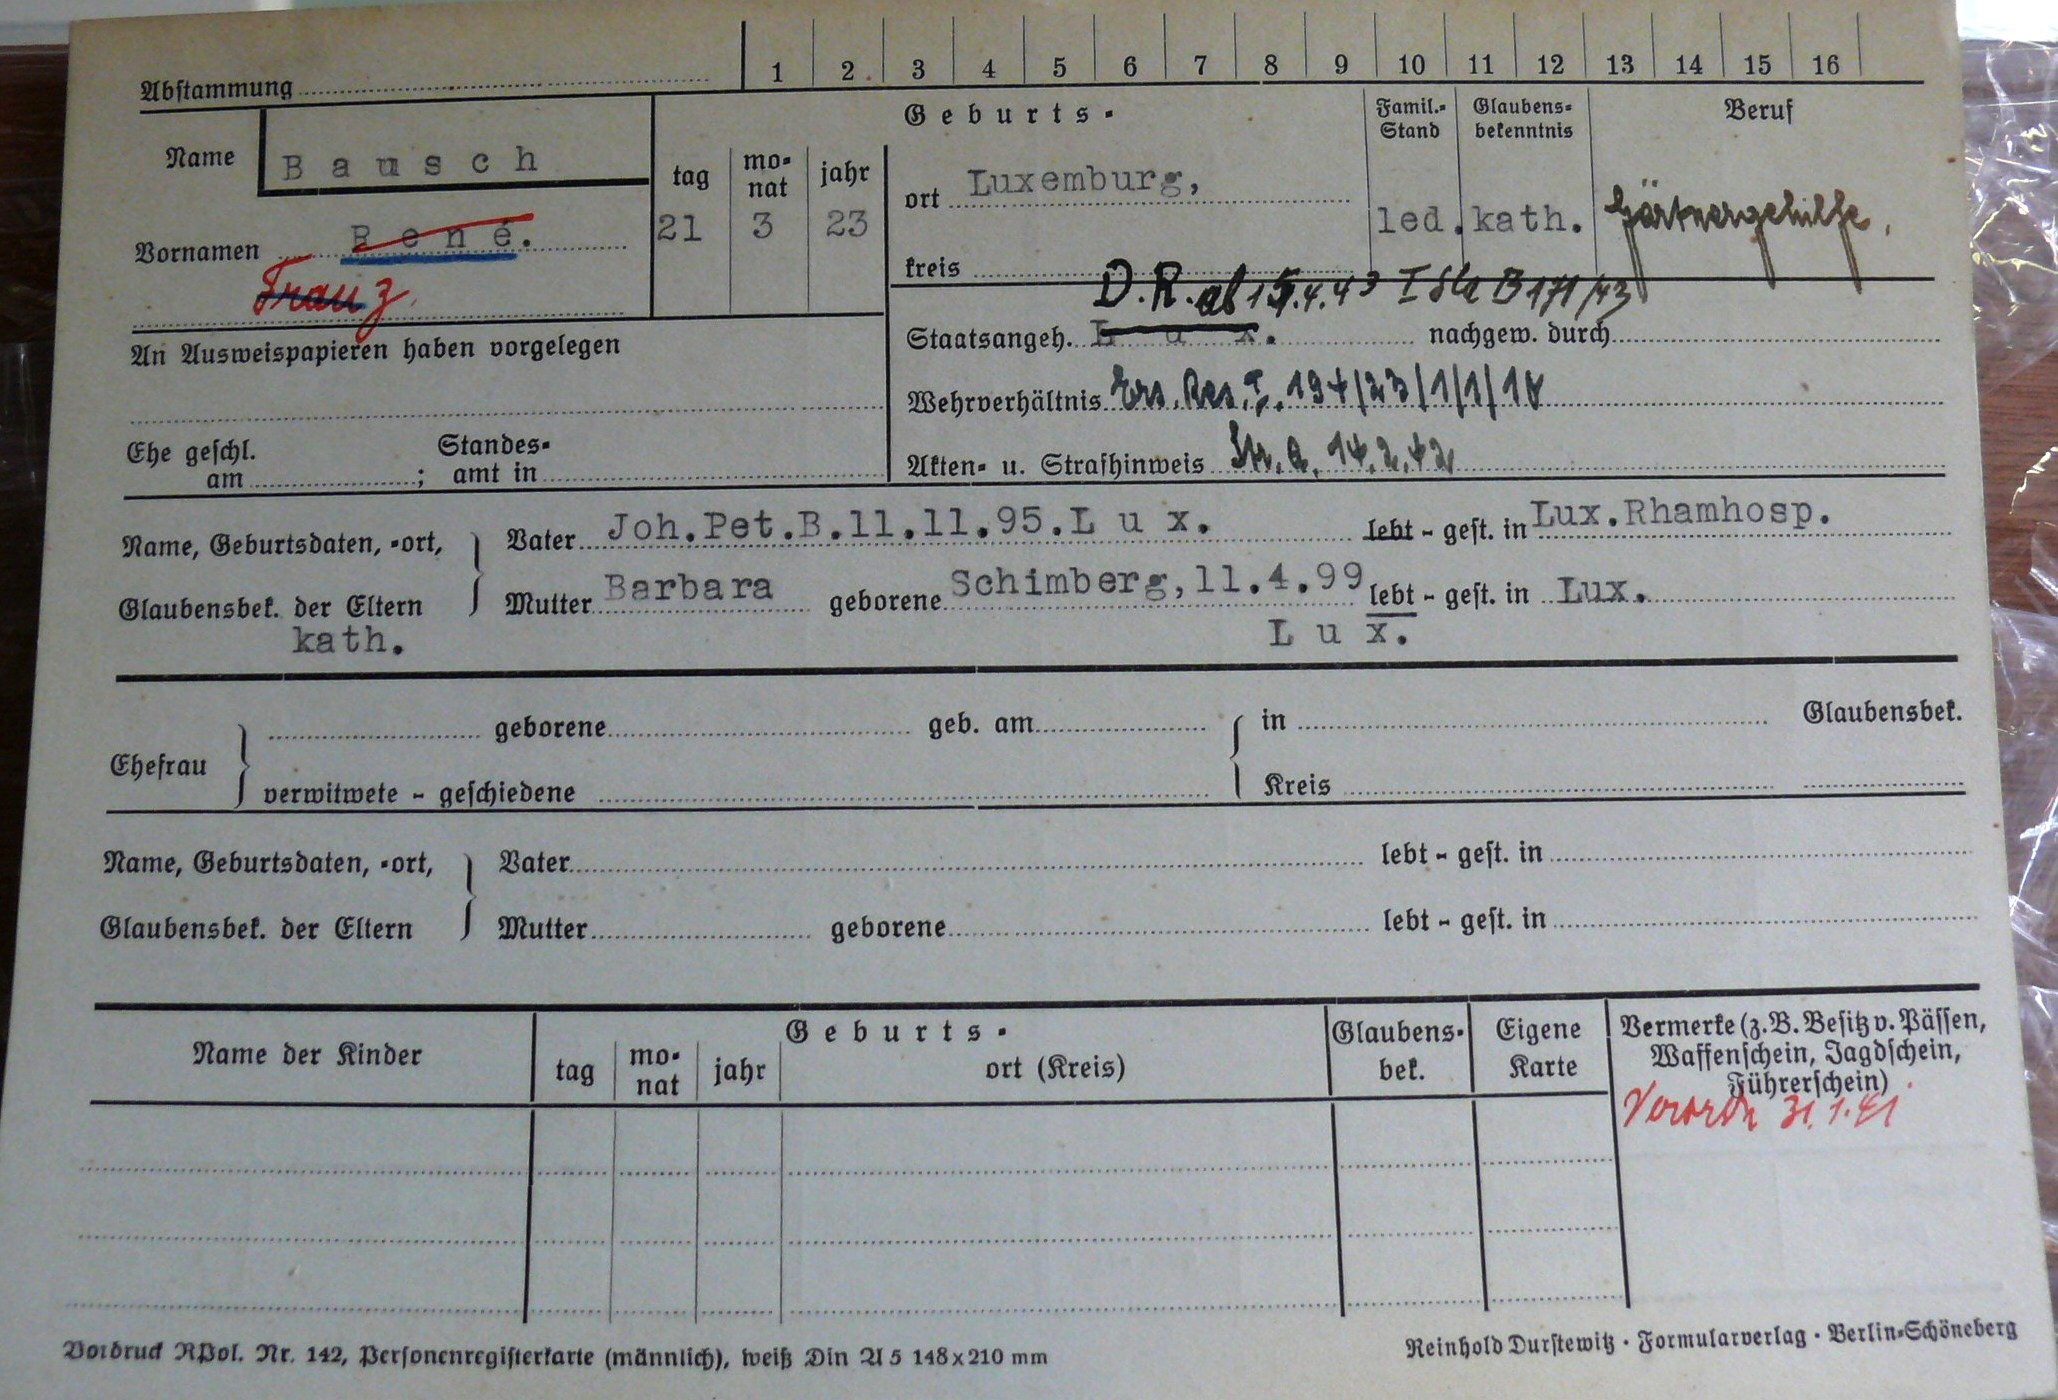 Abstammung 1 2 3 4 5 6 7 8 9 10 11 12 13 14 15 16
Name Bausch
Geburts-
tag monat jahr
Famil.-Stand
Glaubensbekenntnis
Beruf
ort Luxemburg,
Vornamen René. 21 3 23 led. kath. Gärtnergehilfe,
kreis
Franz
D.R. ab 15.4.43 I Sta B 171/43
An Ausweispapieren haben vorgelegen
Staatsangeh. Lux. nachgew. durch
Wehrverhältnis Ers. Res. I. 194/23/1/1/18
Ehe geschl. am ; Standesamt in
Akten- u. Strafhinweis Str. A. 14.2.42
Name, Geburtsdaten, -ort, Vater Joh.Pet.B.11.11.95.Lux. lebt - gest. in Lux.Rhamhosp.
Glaubensbek. der Eltern Mutter Barbara geborene Schimberg,11.4.99 lebt - gest. in Lux.
kath. Lux.
Ehefrau geborene geb. am in Glaubensbek.
verwitwete - geschiedene Kreis
Name, Geburtsdaten, -ort, Vater lebt - gest. in
Glaubensbek. der Eltern Mutter geborene lebt - gest. in
Name der Kinder
Geburts-
tag monat jahr ort (Kreis)
Glaubensbek.
Eigene Karte
Vermerke (z.B. Besitz v. Pässen,
Waffenschein, Jagdschein,
Führerschein)
31.1.41
Vordruck RPol. Nr. 142, Personenregisterkarte (männlich), weiß Din A5 148x210 mm
Reinhold Durstewitz · Formularverlag · Berlin-Schöneberg